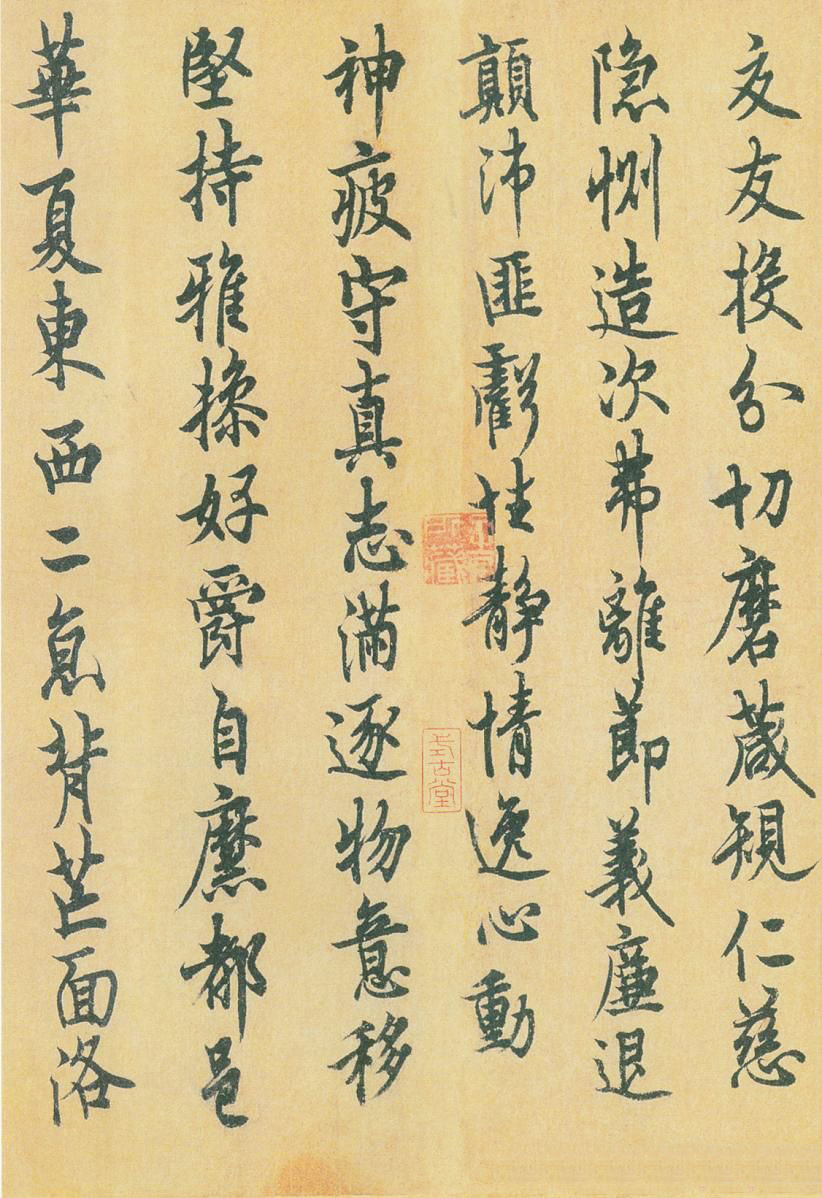 交友投分切磨箴規仁慈
隱惻造次弗離節義廉退
顛沛匪虧性靜情逸心動
神疲守真志滿逐物意移
堅持雅操好爵自縻都邑
華夏東西二京背芒面洛
式古堂